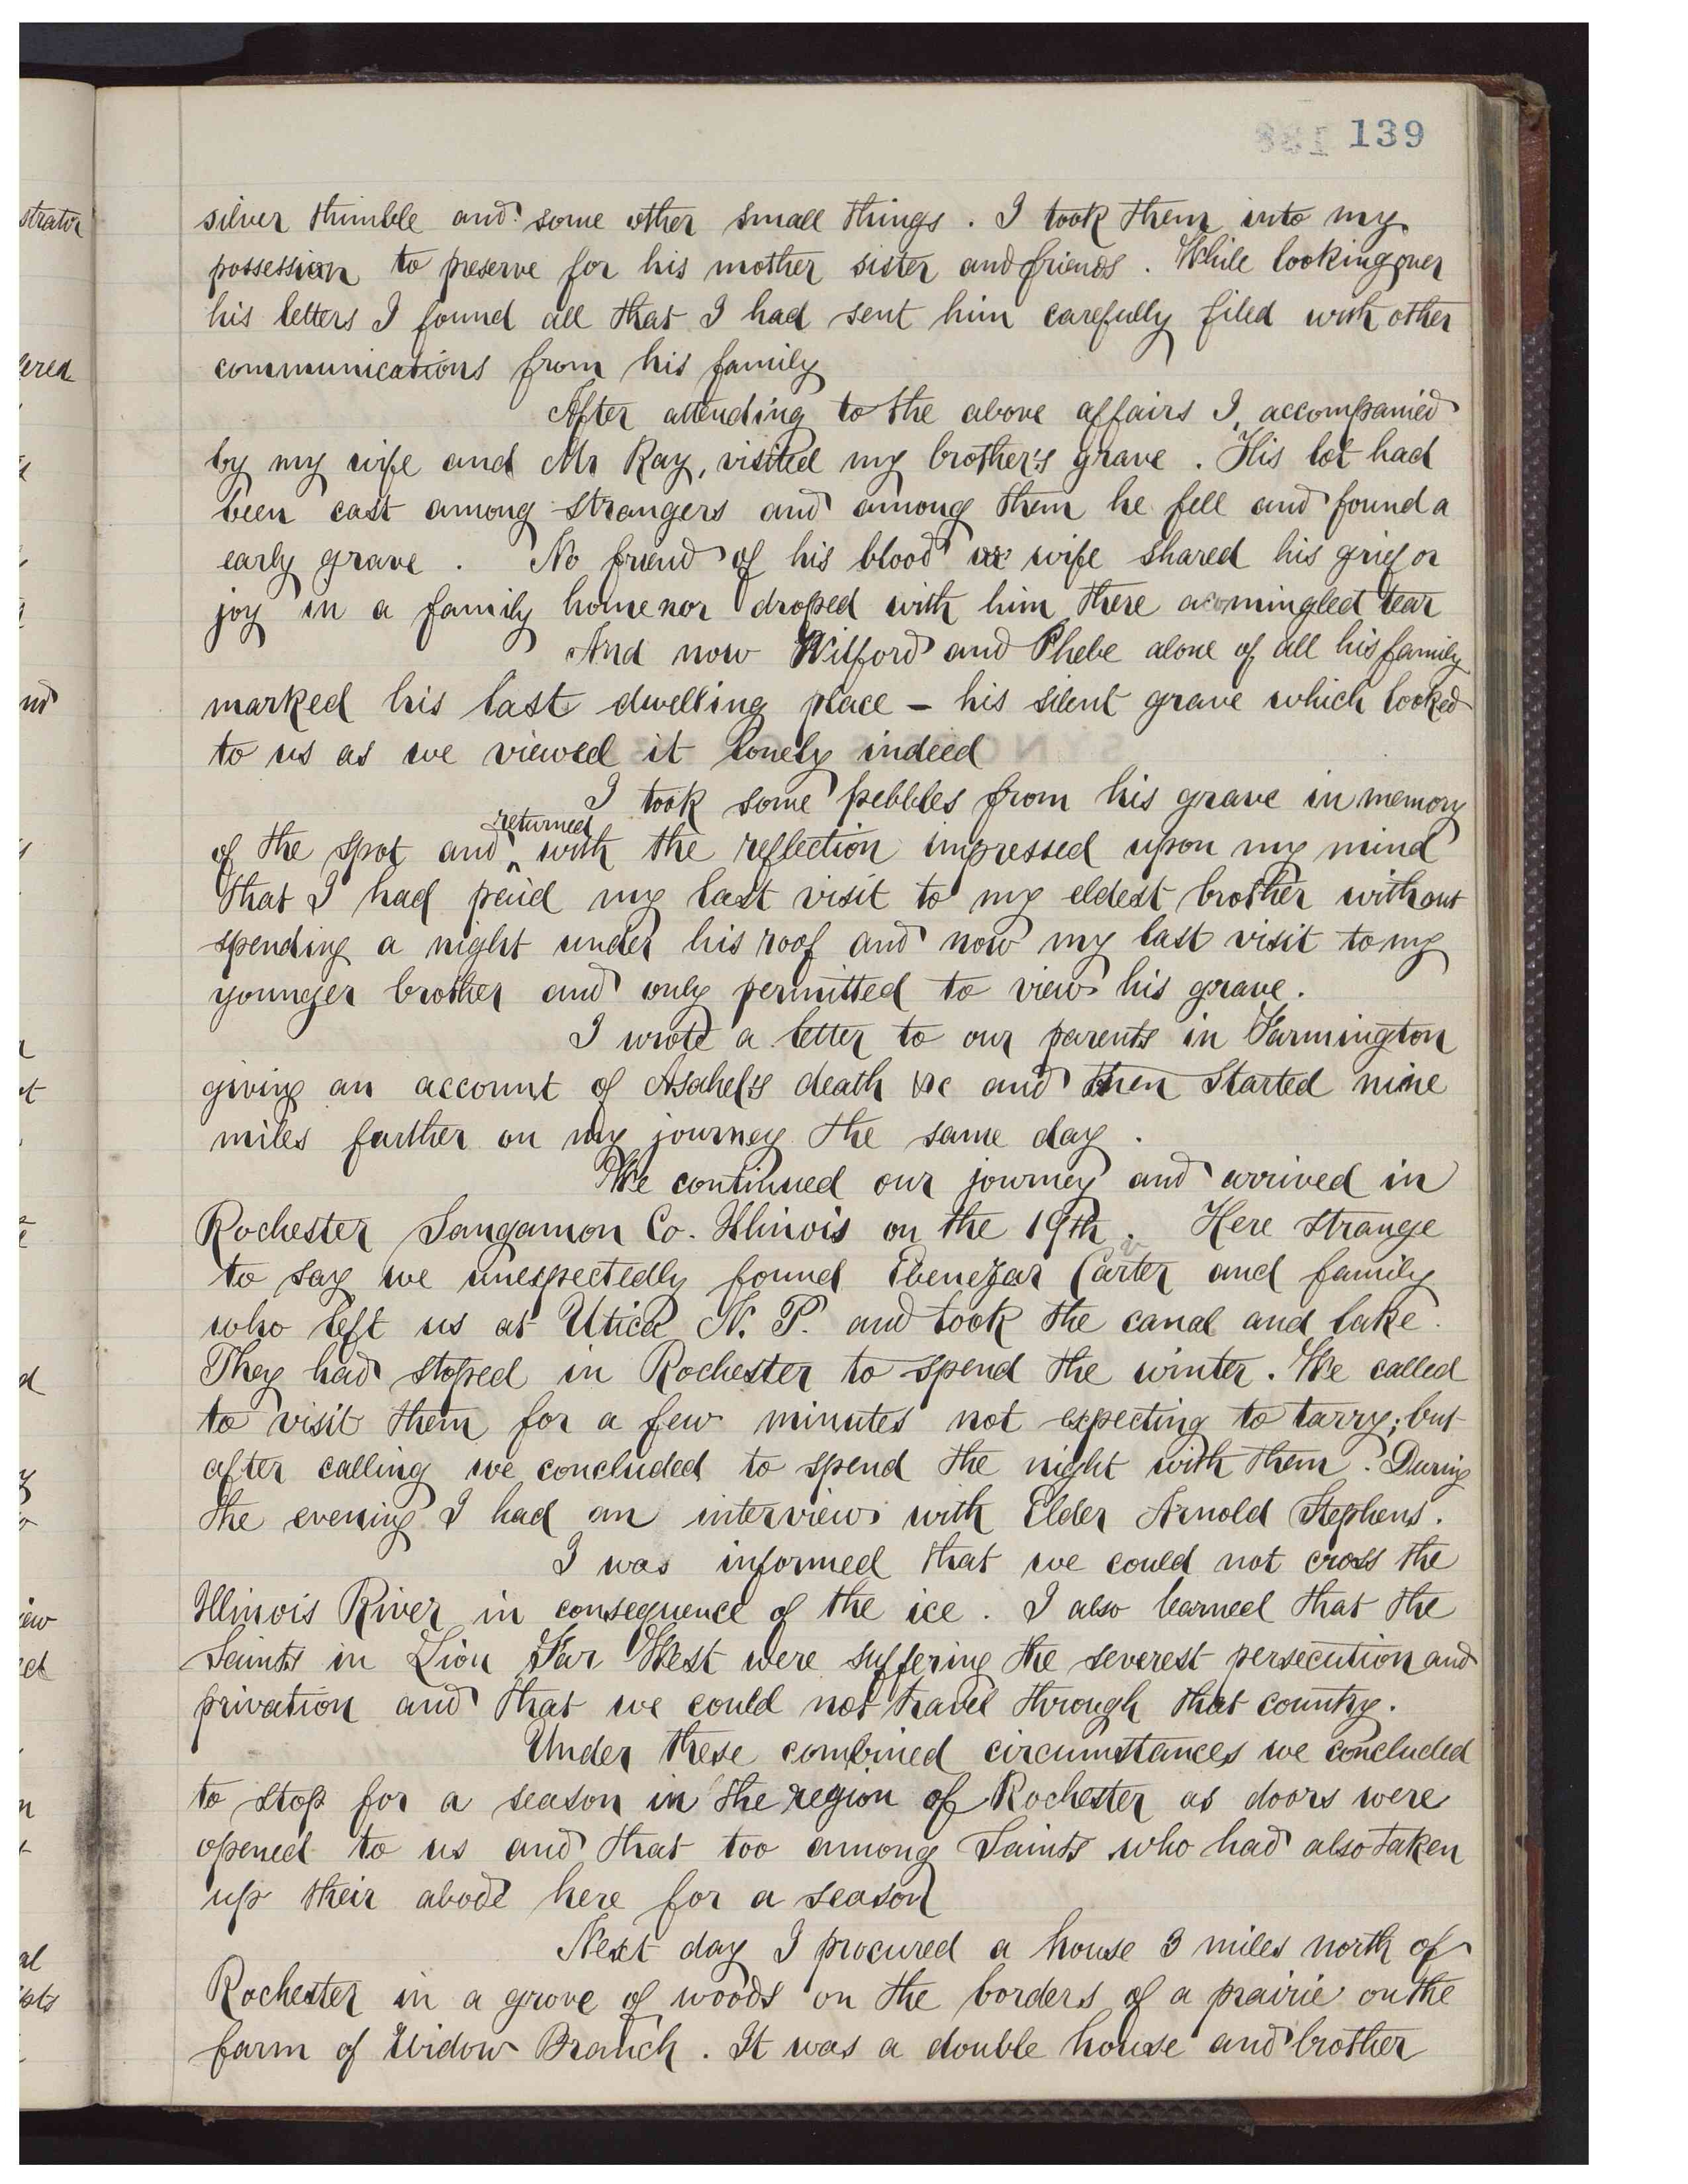 139
silver thimble and some other small things. I took them into my
possession to preserve for his mother sister and friends. While looking over
his letters I found all that I had sent him carefully filed with other
communications from his family
After attending to the above affairs I, accompanied
by my wife and Mr Ray, visited my brother's grave. His lot had
been cast among strangers and among them he fell and found a
early grave. No friend of his blood or wife shared his grief or
joy in a family home nor droped with him there a commingled tear
And now Wilford and Phebe alone of all his family
marked his last dwelling place – his silent grave which looked
to us as we viewed it lonely indeed
I took some pebbles from his grave in memory
returned
of the spot and ^ with the reflection impressed upon my mind
that I had paid my last visit to my eldest brother without
spending a night under his roof and now my last visit to my
younger brother and only permitted to view his grave.
I wrote a letter to our parents in Farmington
giving an account of Asahel's death &c and then started nine
miles farther on my journey the same day.
We continued our journey and arrived in
Rochester Sangamon Co. Illinois on the 19th. Here strange
to say we unexpectedly found Ebenezar Carter and family
who left us at Utica N. P. and took the canal and lake.
They had stoped in Rochester to spend the winter. We called
to visit them for a few minutes not expecting to tarry; but
after calling we concluded to spend the night with them. During
the evening I had an interview with Elder Arnold Stephens.
I was informed that we could not cross the
Illinois River in consequence of the ice. I also learned that the
Saints in Zion Far West were suffering the severest persecution and
privation and that we could not travel through that country.
Under these combined circumstances we concluded
to stop for a season in the region of Rochester as doors were
opened to us and that too among Saints who had also taken
up their abode here for a season
Next day I procured a house 3 miles north of
Rochester in a grove of woods on the borders of a prairie on the
farm of Widow Branch. It was a double house and brother